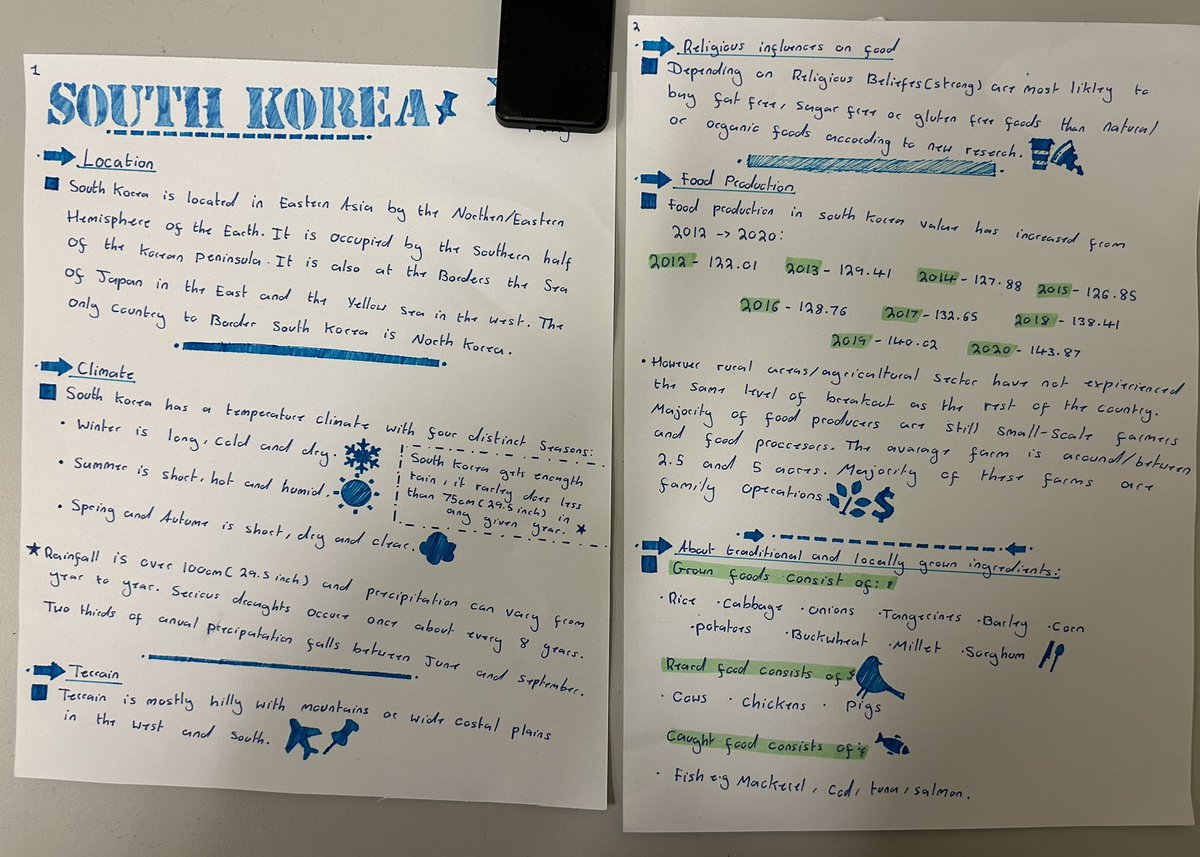 1
SOUTH KOREA
Location
South Korea is located in Eastern Asia by the Northen/Eastern
Hemisphere of the Earth. It is occupied by the Southern half
of the Korean Peninsula. It is also at the Borders the Sea
of Japan in the East and the Yellow Sea in the west. The
only Country to Border South Korea is North Korea.
Climate
South Korea has a temperature climate with four distinct Seasons:
• Winter is long, cold and dry.
• Summer is short, hot and humid.
South Korea gets enength
rain, it rarley does less
than 75cm (29.5 inch) in
any given year.
• Spring and Autume is short, dry and clear.
Rainfall is over 100cm (29.5 inch) and precipitation can vary from
year to year. Serious draughts occure once about every 8 years.
Two thirds of anual percipatation falls between June and september.
Terrain
Terrain is mostly hilly with mountains or wide costal plains
in the west and south.
2
Religious influences on food
Depending on Religious Beliefes (strong) are most likley to
buy fat free, sugar free or gluten free foods than natural
or organic foods accoroding to new research.
Food Production
Food production in south Korea value has increased from
2012 -> 2020:
2012 - 122.01 2013 - 129.41 2014 - 127.88 2015 - 126.85
2016 - 128.76 2017 - 132.65 2018 - 138.41
2019 - 140.02 2020 - 143.87
• However rural areas/agricultural sector have not expierienced
the same level of breakout as the rest of the country.
Majority of food producers are still small-scale farmers
and food processors. The avarage farm is around/between
2.5 and 5 acres. Majority of these farms are
family operations.
About traditional and locally grown ingredients:
Grown foods consist of:
• Rice • Cabbage • onions • Tangerines • Barley • Corn
• potatoes • Buckwheat • Millet • Sorghum
Reard food consists of:
• Cows • chickens • Pigs
Caught food consists of:
• Fish e.g Mackerel, Cod, tuna, salmon.